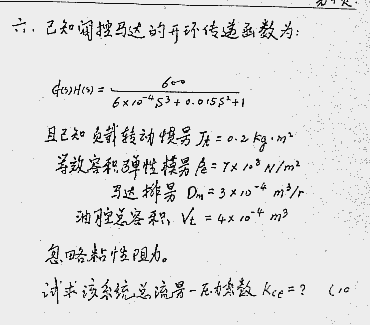 六. 已知阀控马达的开环传递函数为:
G(s)H(s) = 600 / 6×10⁻⁴S³+0.015S²+1
且已知负载转动惯量 Jt = 0.2 kg·m²
等效容积弹性模量 βe = 7×10⁸ N/m²
马达排量 Dm = 3×10⁻⁴ m³/r
油腔总容积, Vt = 4×10⁻⁴ m³
忽略粘性阻力。
试求该系统总流量-压力系数 Kce = ? (10